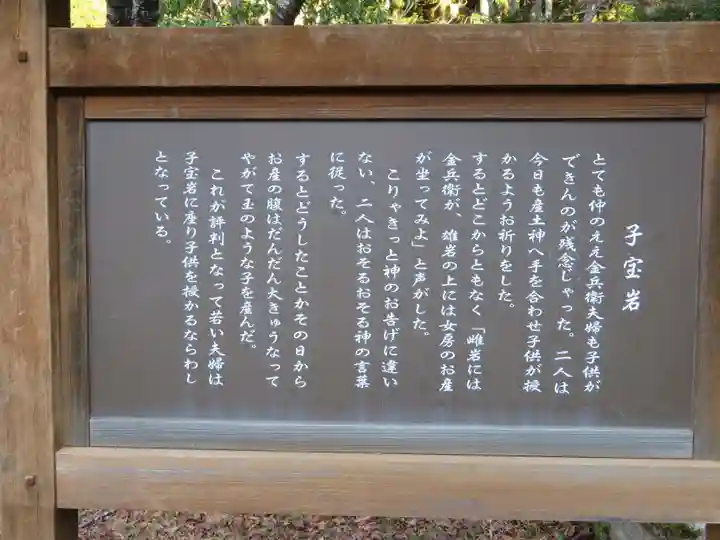 子宝岩
とても仲のええ金兵衛夫婦も子供が
できんのが残念じゃった。二人は
今日も産土神へ手を合わせ子供が授
かるようお祈りをした。
するとどこからともなく「雌岩には
金兵衛が、雄岩の上には女房のお産
が坐ってみよ」と声がした。
こりゃきっと神のお告げに違い
ない、二人はおそるおそる神の言葉
に従った。
するとどうしたことかその日から
お産の腹はだんだん大きゅうなって
やがて玉のような子を産んだ。
これが評判となって若い夫婦は
子宝岩に座り子供を授かるならわし
となっている。